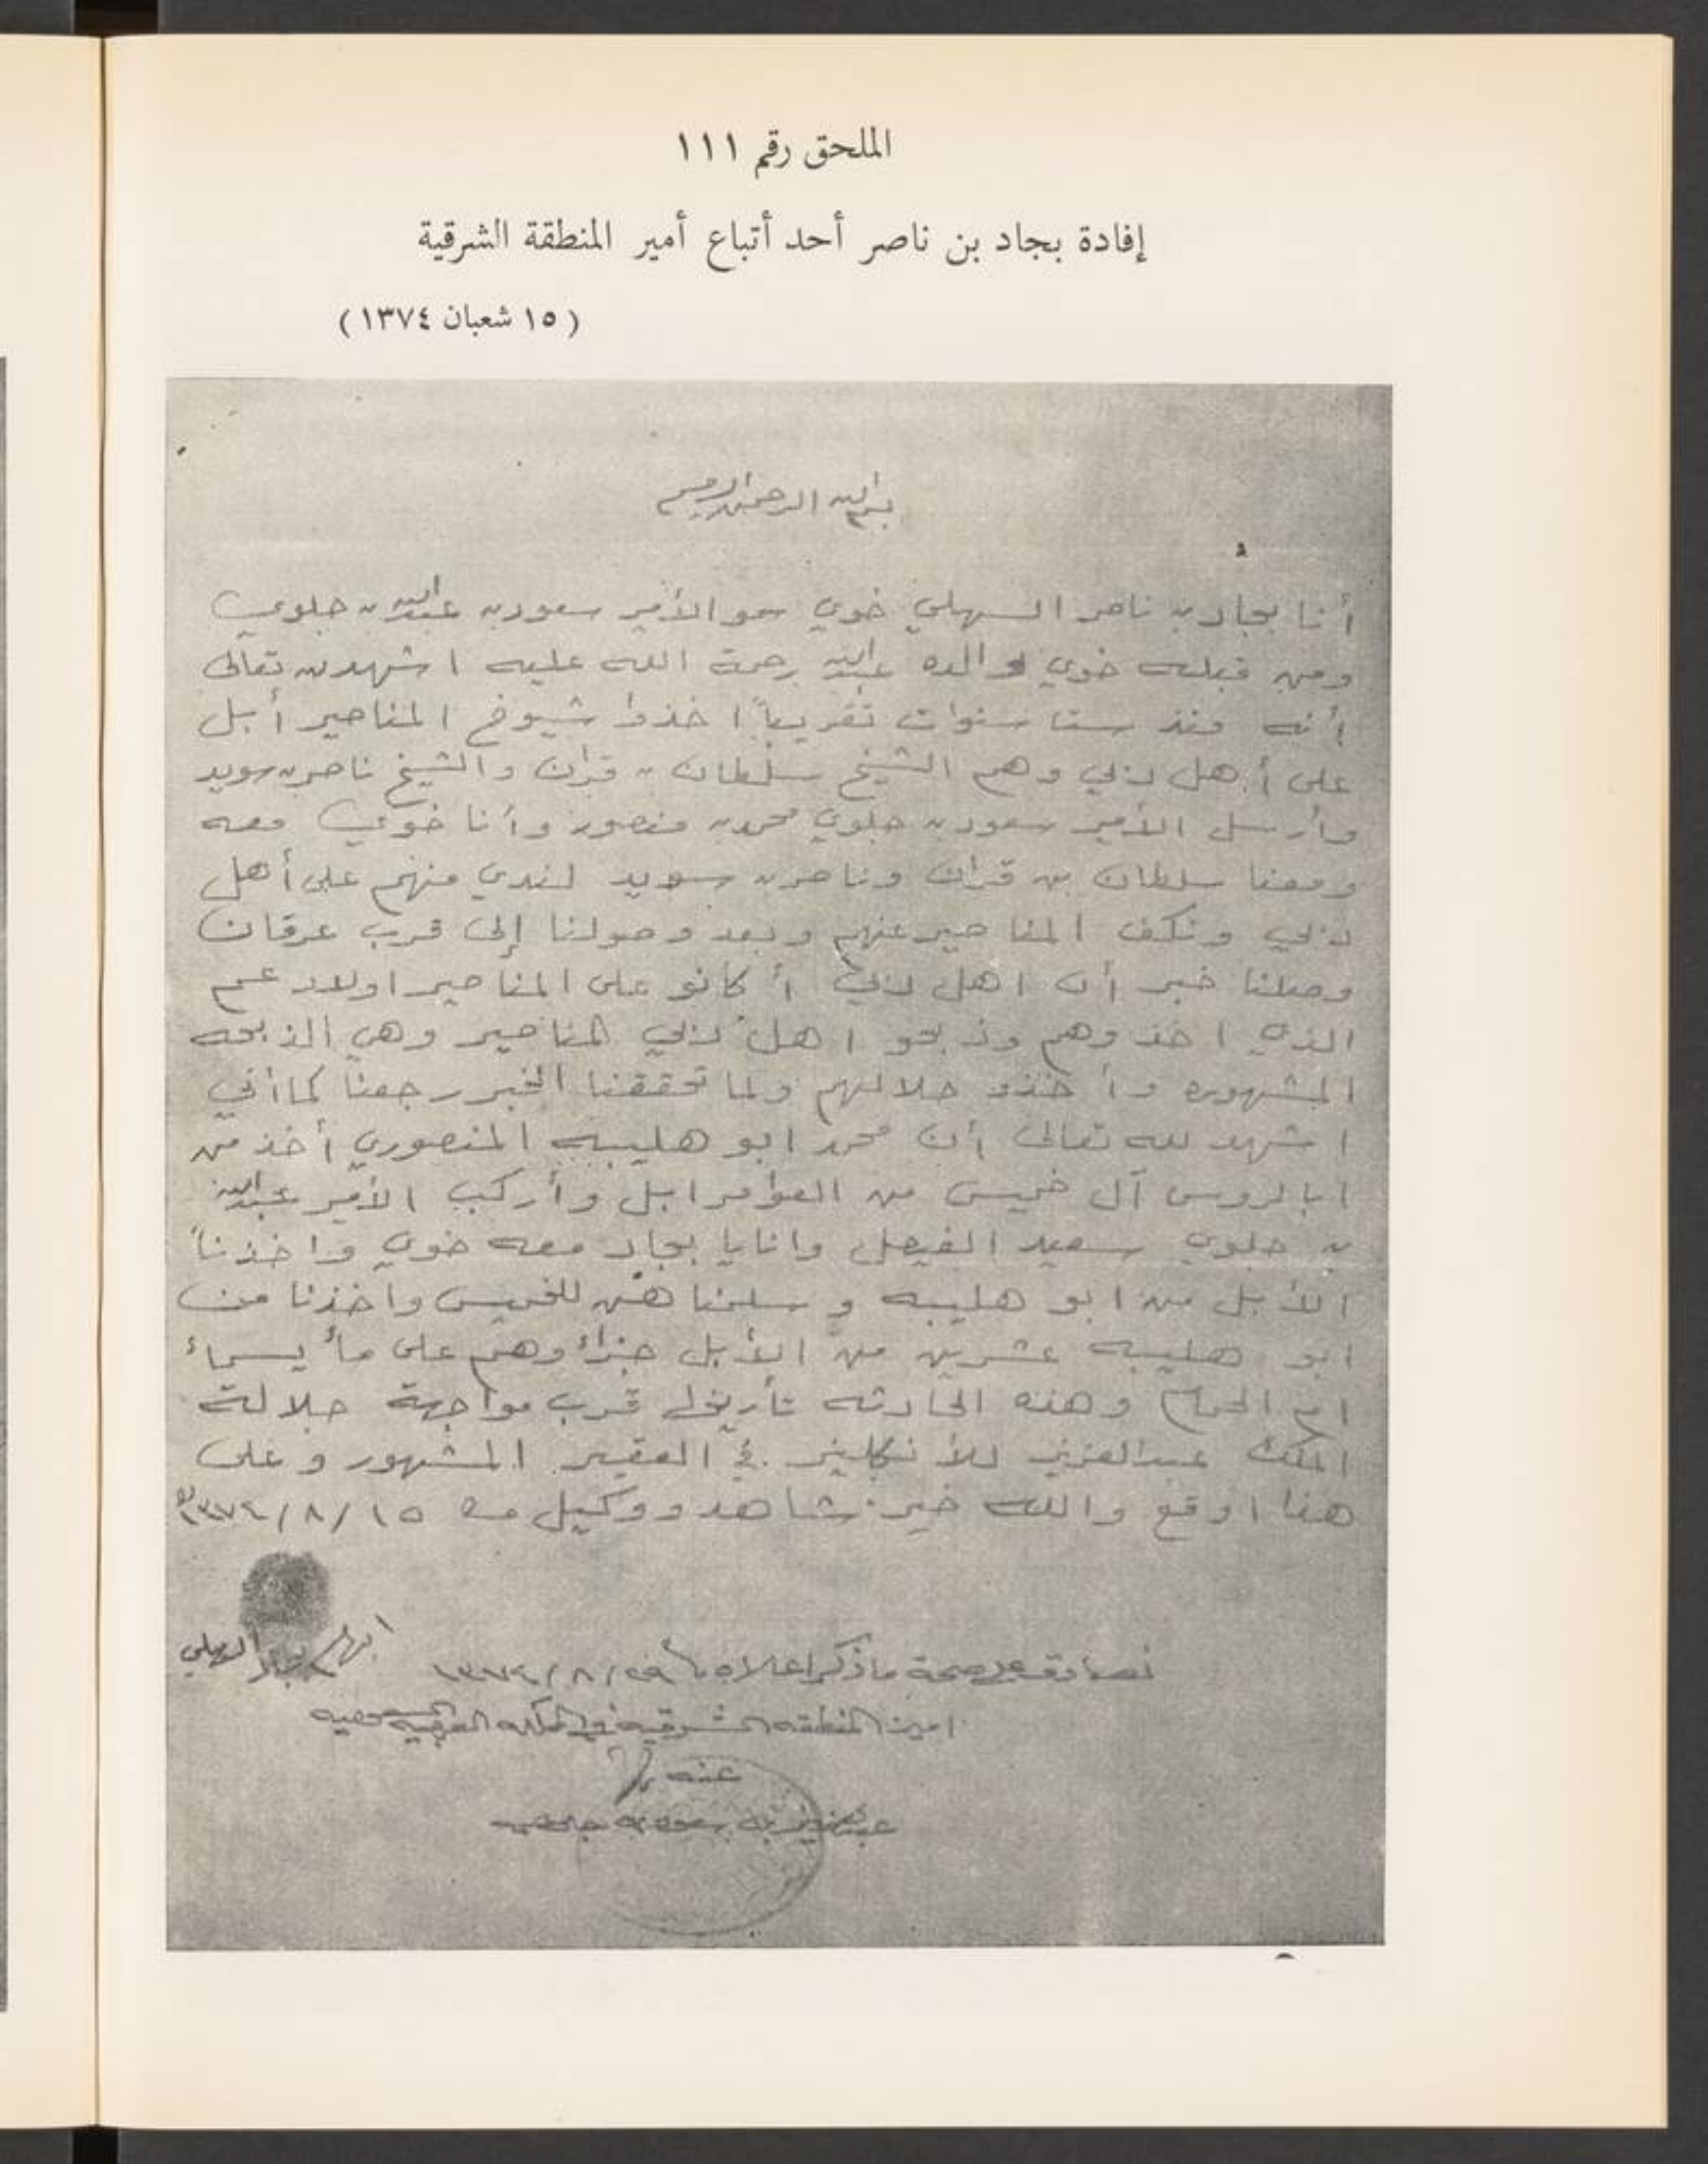 الملحق رقم ١١١
إفادة بجاد بن ناصر أحد أتباع أمير المنطقة الشرقية
( ١٥ شعبان ١٣٧٤ )
بسم الله الرحمن الرحيم
أنا بجاد بن ناصر السهلي خوي سمو الأمير سعود بن عبدالله بن جلوي
ومن قبله خوي لوالده عبدالله رحمة الله عليه اشهد لله تعالى
أنه منذ ستا سنوات تقريباً اخذوا شيوخ المناصير أبل
على أهل دبي وهم الشيخ سلطان بن قران والشيخ ناصر بن سويد
وأرسل الأمير سعود بن جلوي محمد بن منصور وأنا خوي معه
ومعنا سلطان بن قران وناصر بن سويد لندي منهم على أهل
دبي ونكف المناصير عنهم وبعد وصولنا إلى قرب عرقان
وصلنا خبر أن اهل دبي أكانو على المناصير اولاد عم
الذي اخذوهم وذبحو اهل دبي المناصير وهي الذبحه
المشهوره وأخذو حلالهم ولما تحققنا الخبر رجعنا كما أني
اشهد لله تعالى أن محمد ابو هليبه المنصوري أخذ من
ابالروس آل خميس من العوامر ابل وأركب الأمير عبدالله
بن جلوي سعيد الفيصل وانا يا بجاد معه خوي واخذنا
الأبل من ابو هليبه وسلمناهن للخميس واخذنا من
ابو هليبه عشرين من الأبل جزاء وهم على ما يسماء
ام الحمام وهذه الحادثه تأريخها قرب مواجهة جلالة
الملك عبدالعزيز للأنكليز في العقير المشهور وعلى
هذا اوقع والله خير شاهد ووكيل ١٥/٨/١٣٧٤
بجاد السهلي
نصادق على صحة ما ذكر اعلاه ٢٩/٨/١٣٧٤
امير المنطقه الشرقيه في المملكه العربيه السعوديه
عنه
عبدالعزيز بن سعود بن جلوي